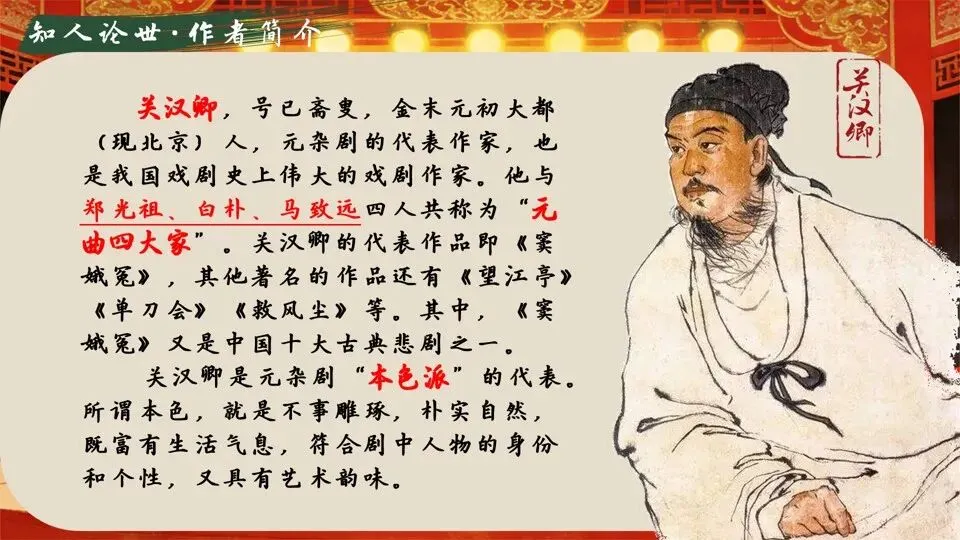 知人论世·作者简介
关汉卿
关汉卿，号已斋叟，金末元初大都
（现北京）人，元杂剧的代表作家，也
是我国戏剧史上伟大的戏剧作家。他与
郑光祖、白朴、马致远四人共称为“元
曲四大家”。关汉卿的代表作品即《窦
娥冤》，其他著名的作品还有《望江亭》
《单刀会》《救风尘》等。其中，《窦
娥冤》又是中国十大古典悲剧之一。
关汉卿是元杂剧“本色派”的代表。
所谓本色，就是不事雕琢，朴实自然，
既富有生活气息，符合剧中人物的身份
和个性，又具有艺术韵味。